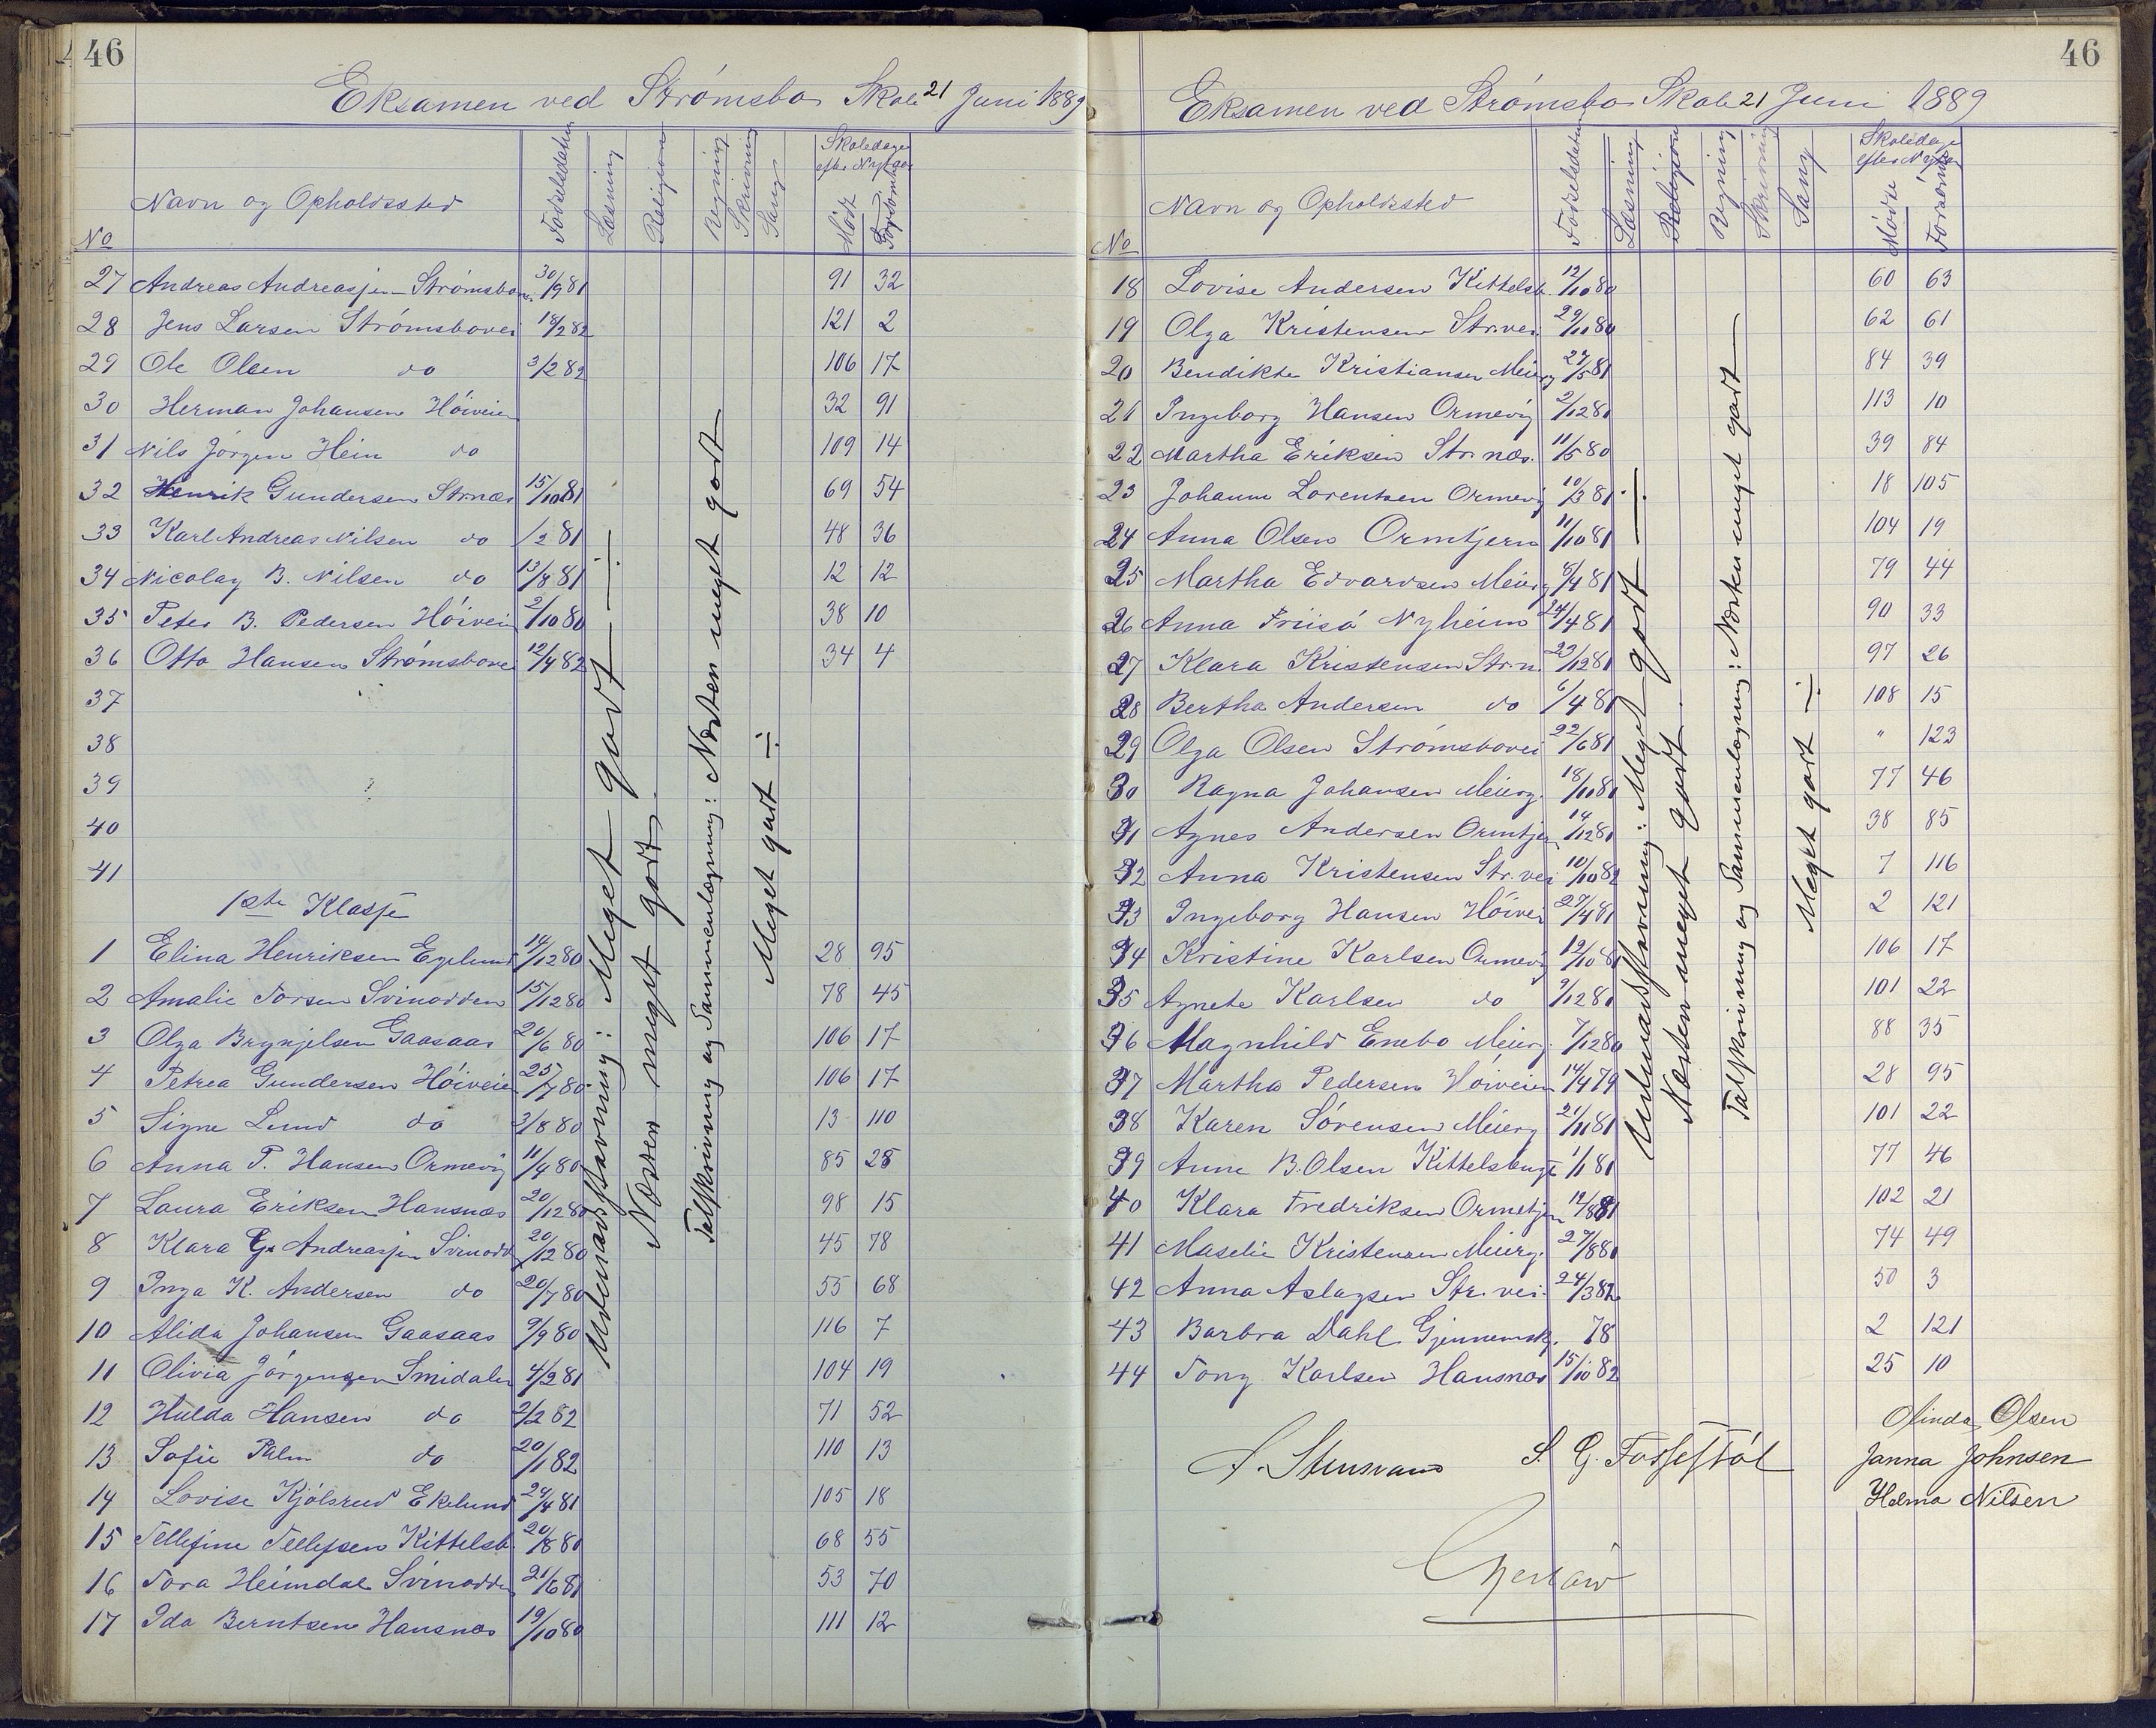 46
Eksamen ved Strømsbo Skole 21 Juni 1889
No Navn og Opholdssted Fødselsdatum Læsning Religion Regning Skrivning Sang Skoledage efter Nytaar Mødt Forsømt
27 Andreas Andreasjen Strømsbovei 30/9 81 91 32
28 Jens Larsen Strømsbovei 18/2 82 121 2
29 Ole Olsen do 3/2 82 106 17
30 Herman Johansen Höiveien 32 91
31 Nils Jörgen Hein do 109 14
32 Henrik Gundersen Str.næs 15/10 81 69 54
33 Karl Andreas Nilsen do /2 81 48 36
34 Nicolay B. Nilsen do 13/8 81 12 12
35 Peter B. Pedersen Höivein 2/10 80 38 10
36 Otto Hansen Strømsbovei 12/4 82 34 4
37
38
39
40
41
Udenadsstavning: Meget godt ÷
Næsten meget godt.
Talskrivning og Sammenlægning: Næsten meget godt
Meget godt ÷
1ste Klasse
1 Elina Henriksen Egelund 14/12 80 28 95
2 Amalie Torsen Svinodden 15/12 80 78 45
3 Olga Brynjelsen Gaasaas 20/6 80 106 17
4 Petrea Gundersen Höiveien 25/7 80 106 17
5 Signe Lund do 3/8 80 13 110
6 Anna P. Hansen Ormevig 11/4 80 85 28
7 Laura Eriksen Hansnæs 20/12 80 98 15
8 Klara G. Andreasjen Svinodd. 20/12 80 45 78
9 Inga K. Andersen do 20/7 80 55 68
10 Alida Johansen Gaasaas 9/9 80 116 7
11 Olivia Jörgensen Smidalen 4/2 81 104 19
12 Hulda Hansen do 2/2 82 71 52
13 Sofie Palm do 20/1 82 110 13
14 Lovise Kjölsrud Ekelund 24/4 81 105 18
15 Tellefine Tellefsen Kittelsb. 20/8 80 68 55
16 Tora Heimdal Svinodden 21/6 81 53 70
17 Ida Berntsen Hansnæs 19/10 80 111 12
46
Eksamen ved Strømsbo Skole 21 Juni 1889
No Navn og Opholdssted Fødselsdatum Læsning Religion Regning Skrivning Sang Skoledage efter Nytaar Mødt Forsømt
18 Lovise Andersen Kittelsb. 12/10 80 60 63
19 Olga Kristensen Str.vei 29/11 80 62 61
20 Bendikte Kristiansen Meierg 27/5 81 84 39
21 Ingeborg Hansen Ormevig 2/12 81 113 10
22 Martha Eriksen Str.næs. 11/5 80 39 84
23 Johanne Lorentsen Ormevig 10/3 81 18 105
24 Anna Olsen Ormtjern 11/10 81 104 19
25 Martha Edvardsen Meierg 8/4 81 79 44
26 Anna Friisö Nyheim 24/4 81 90 33
27 Klara Kristensen Str.n. 23/12 81 97 26
28 Bertha Andersen do 6/4 81 108 15
29 Olga Olsen Strømsbovei 22/6 81 " 123
30 Ragna Johansen Meierg. 18/11 80 77 46
31 Agnes Andersen Ormtjen 14/12 81 38 85
32 Anna Kristensen Str.vei 10/10 82 7 116
33 Ingeborg Hansen Höivei 27/4 81 2 121
34 Kristine Karlsen Ormevig 12/10 81 106 17
35 Agnete Karlsen do 9/12 81 101 22
36 Magnhild Enebo Meierg. 7/12 80 88 35
37 Martha Pedersen Höiveien 14/4 79 28 95
38 Karen Sörensen Meierg 21/11 81 101 22
39 Anne B. Olsen Kittelsbugt 1/1 81 77 46
40 Klara Fredriksen Ormetjen 12/8 81 102 21
41 Maselie Kristensen Meierg. 27/8 80 74 49
42 Anna Aslagsen Str. vei. 24/3 82 50 3
43 Barbra Dahl Gjennemsk. 78 2 121
44 Tony Karlsen Hansnæs 15/10 82 25 10
Udenadsstavning: Meget godt ÷
Næsten meget godt.
Talskrivning og Sammenlægning: Næsten meget godt
Meget godt ÷
Olinda Olsen
S. G. Fosselstöl
Janna Johnsen
Helma Nilsen